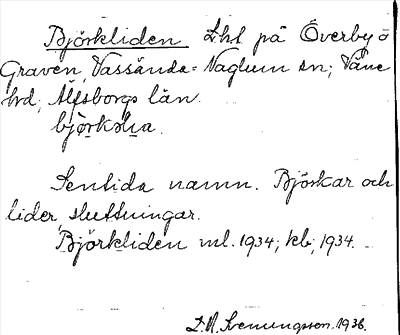 Björkliden Lht på Överby ö
Graven, Vassända-Naglum sn; Väne
hd; Älfsborgs län.
Sentida namn. Björkar och
lider, sluttningar.
Björkliden ml. 1934; kb; 1934.
D.A. Svenungsson. 1936.